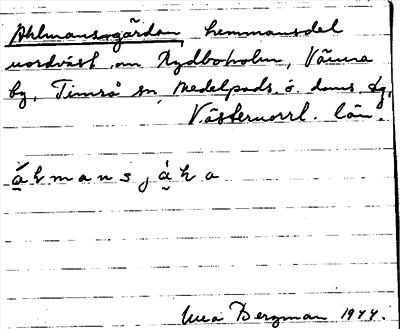 Ahlmansgården, hemmansdel
nordväst om Rydboholm, Vävna
by, Timrå sn, Medelpads ö. doms. tg,
Västernorrl. län.
åhmansjåka
Bergman 1944.